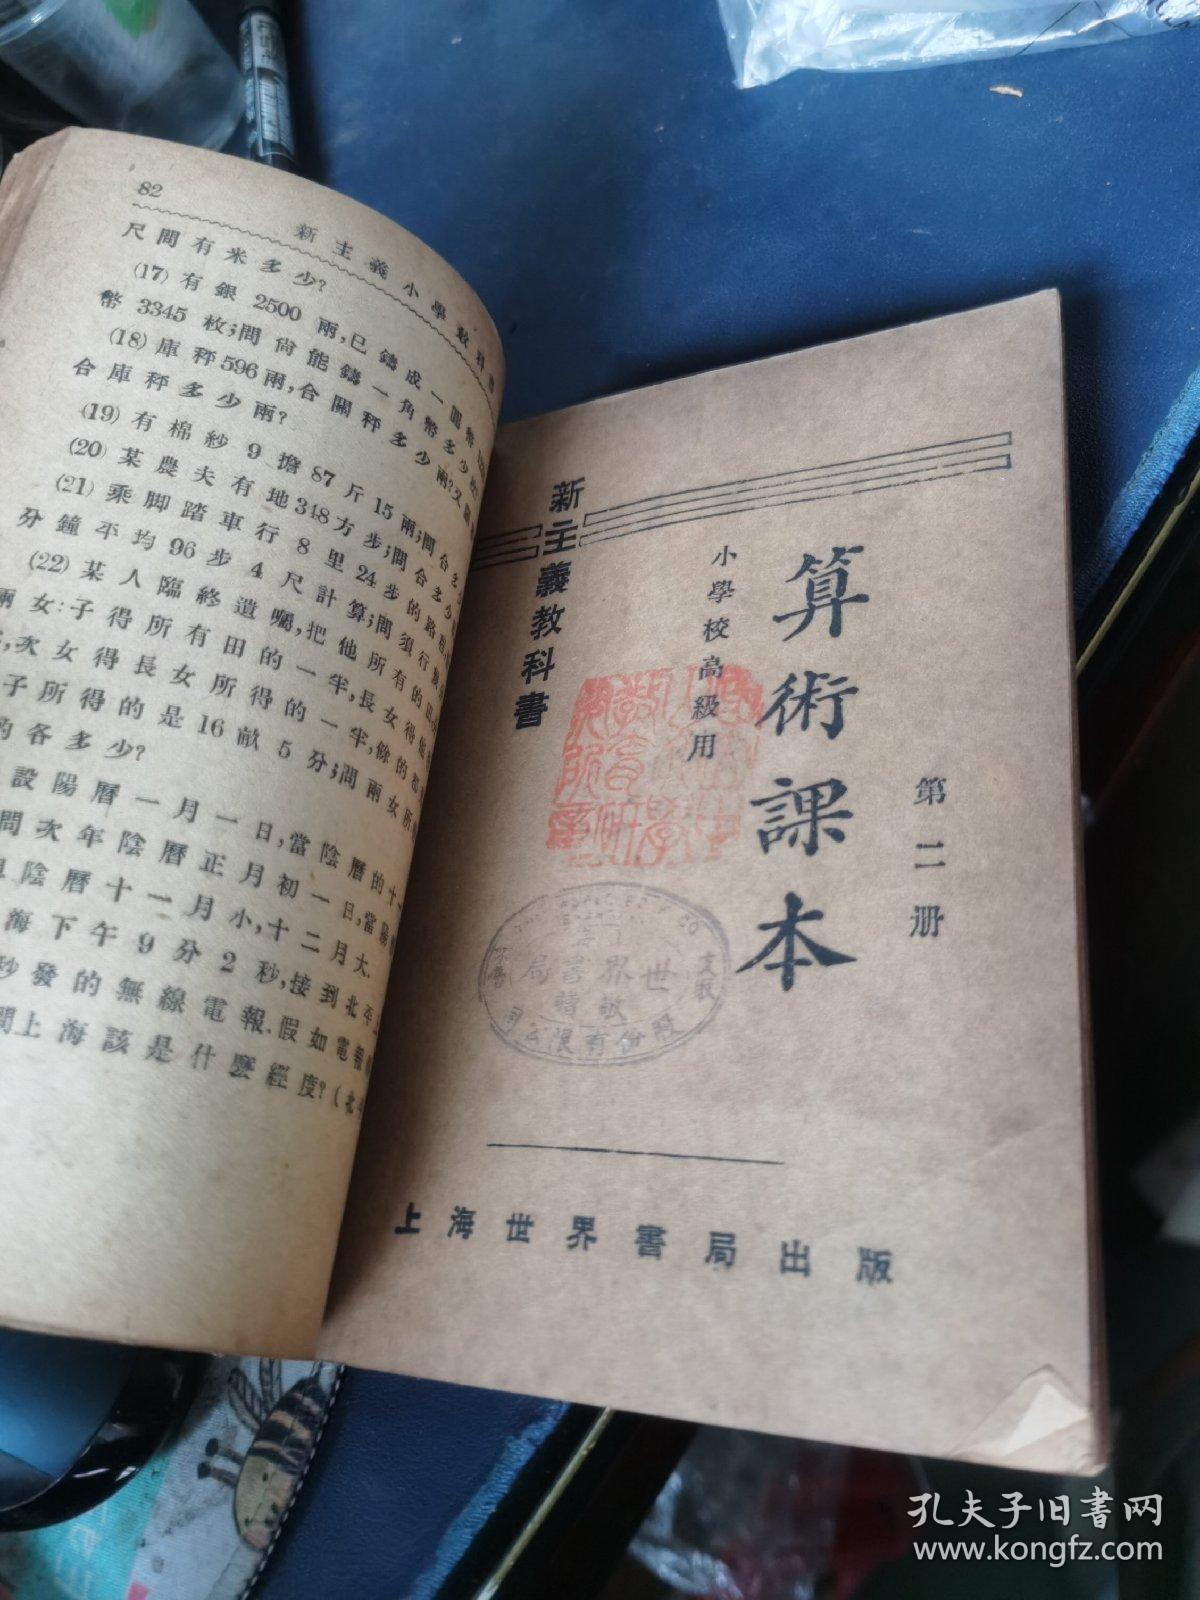 82
新主義小學教科書
尺間有米多少?
(17) 有銀 2500 兩,已鑄成一圓幣
幣 3345 枚;問尙能鑄一角幣多少枚
(18) 庫秤 596 兩,合關秤多少兩?又
合庫秤多少兩?
(19) 有棉紗 9 擔 87 斤 15 兩;問合
(20) 某農夫有地 348 方步;問合多少
(21) 乘脚踏車行 8 里 24 步的路程,
分鐘平均 96 步 4 尺計算;問須行幾
(22) 某人臨終遺囑,把他所有的田,
兩女:子得所有田的一半,長女得
,次女得長女所得的一半,餘的都
子所得的是 16 畝 5 分;問兩女所
各多少?
設陽曆一月一日,當陰曆的十一
問次年陰曆正月初一日,當陽
陰曆十一月小,十二月大.
海下午 9 分 2 秒,接到北平
秒發的無線電報.假如電報
問上海該是什麼經度?(北
新主義教科書
小學校高級用
算術課本
第二册
世界書局
敬贈
股份有限公司
上海世界書局出版
孔夫子旧书网
www.kongfz.com